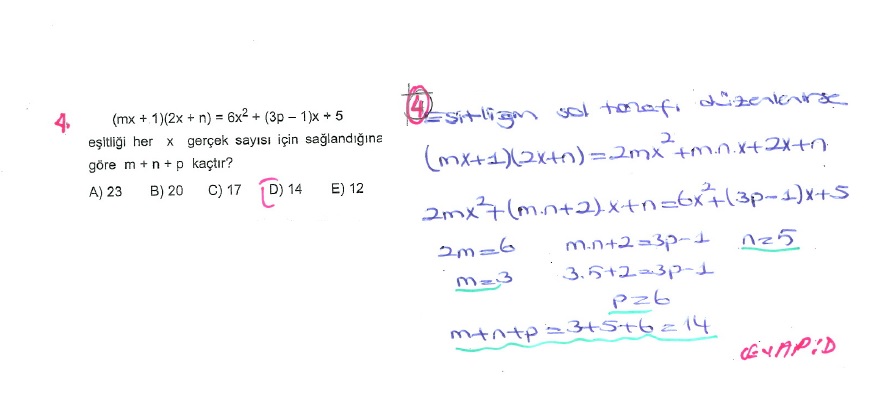 4. (mx + 1)(2x + n) = 6x² + (3p – 1)x + 5
eşitliği her x gerçek sayısı için sağlandığına
göre m + n + p kaçtır?
A) 23 B) 20 C) 17 D) 14 E) 12
4 Eşitliğin sol tarafı düzenlenirse
(mx+1)(2x+n)=2mx²+m.n.x+2x+n
2mx²+(m.n+2).x+n=6x²+(3p-1)x+5
2m=6 m.n+2=3p-1 n=5
m=3 3.5+2=3p-1
p=6
m+n+p=3+5+6=14
CEVAP:D